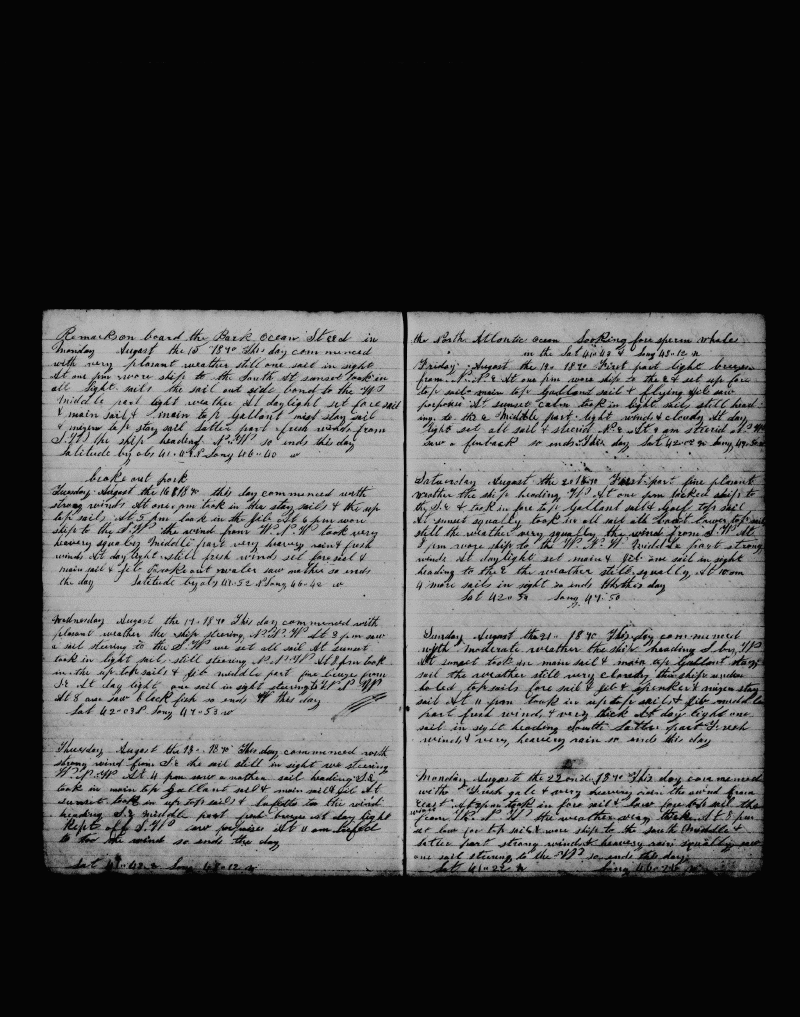 Remarks on board the Bark Ocean Steed in
Monday August the 15 1870 This day commenced
with very plesant weather still one sail in sight
At one pm wore ship to the South At sunset took in
all light sails the sail out side bond to the W
Middle part light weather At daylight set fore sail
& main sail & main top Gallant mast stay sail
& mizen top stay sail latter part fresh winds from
S.W the ship heading N.W so ends this day
Latitude by obs 41.49 Long 46-40 w
broke out pork
Tuesday August the 16 1870 this day commenced with
strong winds At one pm took in the stay sails & the up
top sails At 5 pm took in the jib At 6 pm wore
ship to the S.W the wind from W.N.W took very
heavey squalls Middle part very heavey rain & fresh
winds At day light still fresh winds set fore sail &
main sail & jib Broke out water saw nother so ends
the day Latitude by obs 41-52 Long 46-42 w
Wednesday August the 17- 1870 This day commenced with
plesant weather the ship steering N.N.W At 3 pm saw
a sail steering to the S.W we set all sail At sunset
took in light sail still steering N.N.W At 8 pm took
in the up top sails & jib middle part fine breeze from
S.E At day light one sail in sight steering W
At 8 am saw black fish so ends this day
Lat 42-03 Long 47-53 w
Thursday August the 18- 1870 This day commenced with
strong wind from S.E the sail still in sight we steering
W.N.W At 4 pm saw a nother sail heading S.E
took in main top Gallant sail & main sail & jib At
sunset took in up top sails & luffed to the wind
heading S.E middle part fresh breeze at day light
Kept off S.W saw porpoises At 11 am luffed
to the wind so ends the day
Lat 41-42 Long 47-12 w
the North Atlantic ocean looking fore sperm whale
in the Lat 41-49 & Long 48-12 w
Friday August the 19- 1870 First part light breeze
from N.N.E At one pm wore ship to the E & set up fore
top sail main top Gallant sail & flying jib saw
porpoises At sunset took in light sails still head-
ing to the E Middle part light winds & cloudy At day
light set all sail & steerid At 9 am steerid
saw a finback so ends this day Lat 42-02 Long 47-50
Saturday August the 20 1870 First part fine plesant
weather the ship heading W At one pm tacked ship to
the S.E & took in fore top Gallant sail & Gaff top sail
At sunset squally took in all sail all but lower top sail
still the weather very squally the wind from S.W At
8 pm wore ship to the W.N.W Middle part strong
winds At day light set main & jib one sail in sight
heading to the E the weather still squally At 10 am
4 more sails in sight so ends this day
Lat 42-30 Long 47-50
Sunday August the 21- 1870 This day commenced
with moderate weather the ship heading S. by W
At sunset took in main sail & main top Gallant stay
sail the weather still very cloudy the ship under
top sails fore sail & jib & spenker & mizen stay
sail At 11 pm took in up top sails & jib middle
part fresh winds & very thick At day light one
sail in sight heading South Latter part Fresh
winds & very heavey rain so ends this day
Monday August the 22 nd 1870 This day commenced
with Fresh gale & very heavey rain the wind from
East At 2 pm took in fore sail & saw one sail the
wind from W.N.W the weather very thick At 8 pm
set low for top sail & wore ship to the South Middle &
latter part strong winds & heavey rain squally saw
one sail steering to the W so ends this day
Lat 41-22 Long 46-26